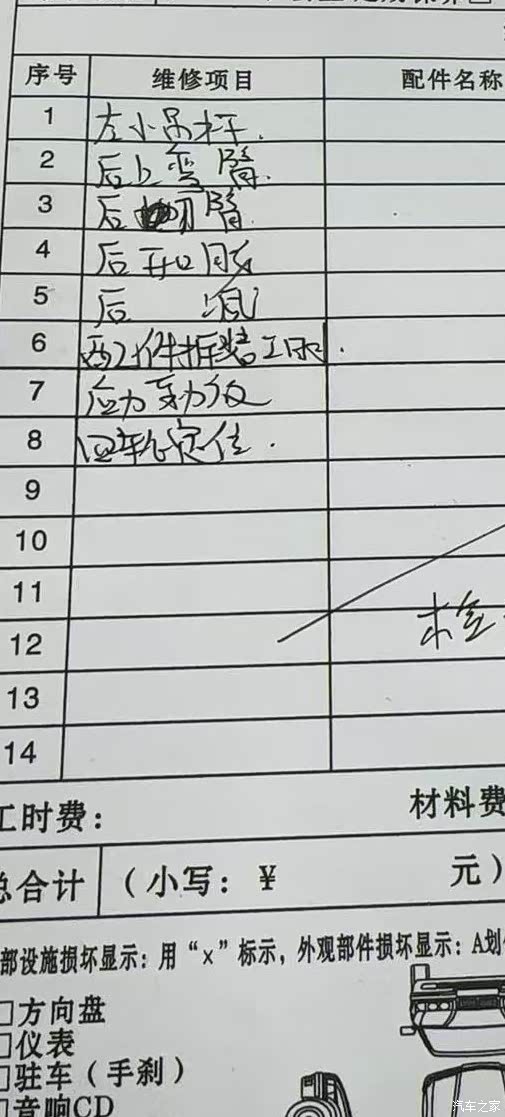 序号 维修项目 配件名称
1 左小吊杆.
2 后上弯臂.
3 后 臂.
4 后
5 后
6 配件拆装工时.
7 应力
8 四轮定位.
9
10
11
12
13
14
工时费： 材料费
总合计 （小写：￥ 元）
部设施损坏显示：用“×”标示，外观部件损坏显示：A划
□方向盘
□仪表
□驻车（手刹）
□音响CD
汽车之家